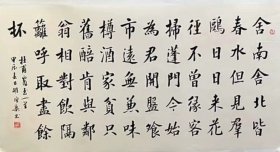 舍南舍北皆
春水但見羣
鷗日日來花
徑不曾緣客
掃蓬門今始
為君開盤飧
市遠無兼味
樽酒家貧只
舊醅肯與鄰
翁相對飲隔
籬呼取盡餘
杯
杜甫